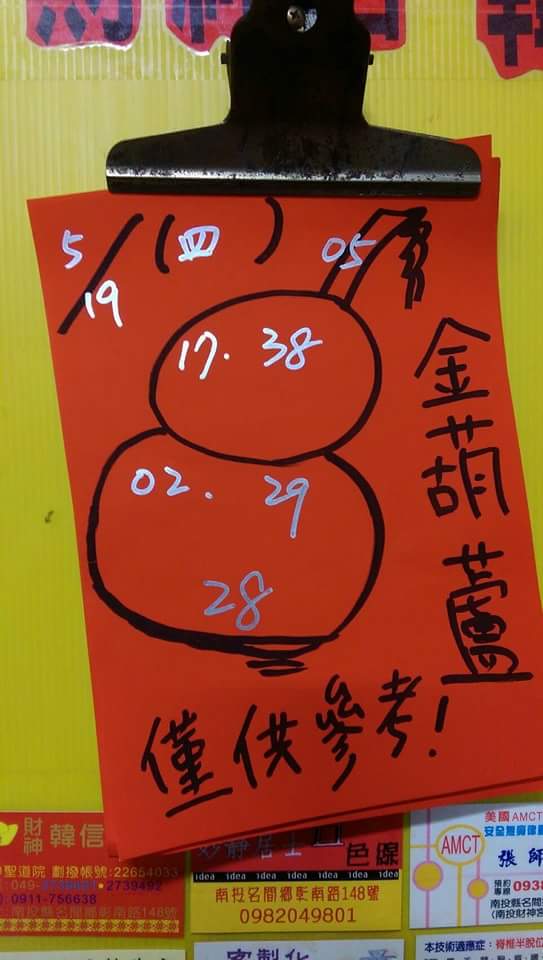 5/19 (四)
05
17. 38
02. 29
28
金葫蘆
僅供參考!
財神 韓信
聖道院 劃撥帳號:22654033
2739492
0911-756638
南投名間鄉彰南路148號
妙靜居士
色線
idea idea idea idea idea
南投名間鄉彰南路148號
0982049801
美國AMCT
AMCT
張師
預約專線 0938
南投縣名間
(南投財神宮
本技術適應症：脊椎半脫位